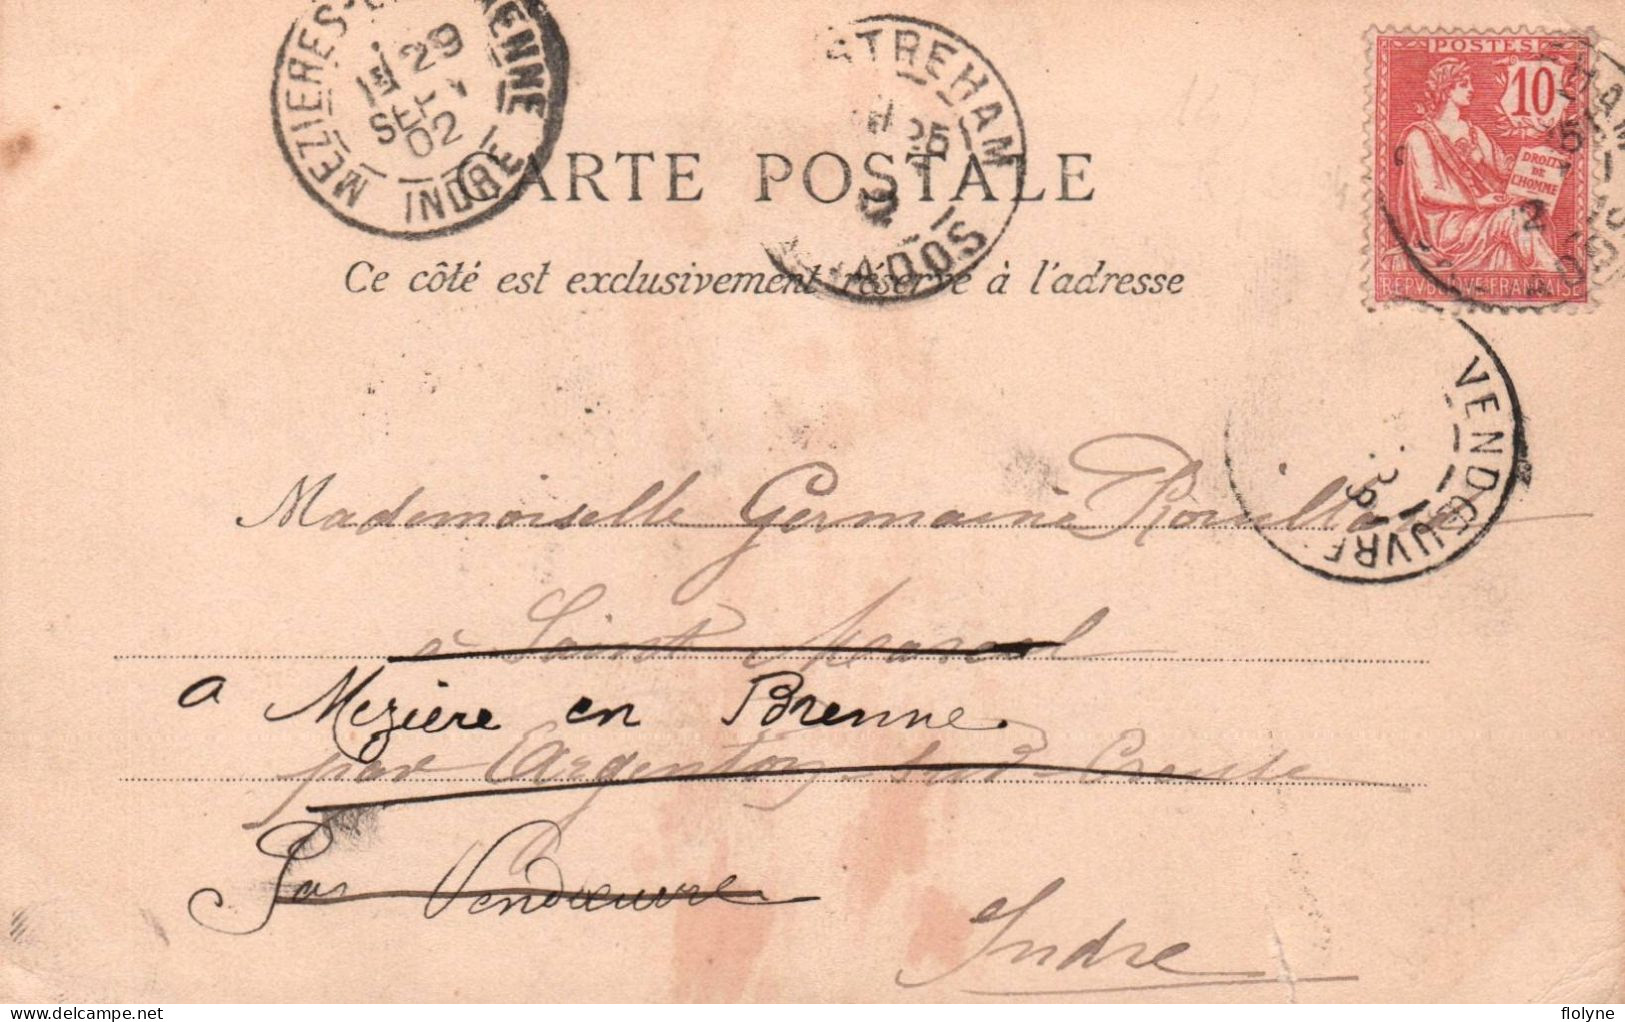 MEZIERES-EN-BRENNE
29
SEPT
02
INDRE
OUISTREHAM
25
CALVADOS
POSTES
10
DROITS
DE
L'HOMME
REPVBLIQVE FRANÇAISE
CARTE POSTALE
Ce côté est exclusivement réservé à l'adresse
VENDOEUVRE
29
Mademoiselle Germaine Rouillard
à Saint Marcel
a Mezière en Brenne.
par Argenton-sur-Creuse
Par Vendœuvre
Indre
flolyne